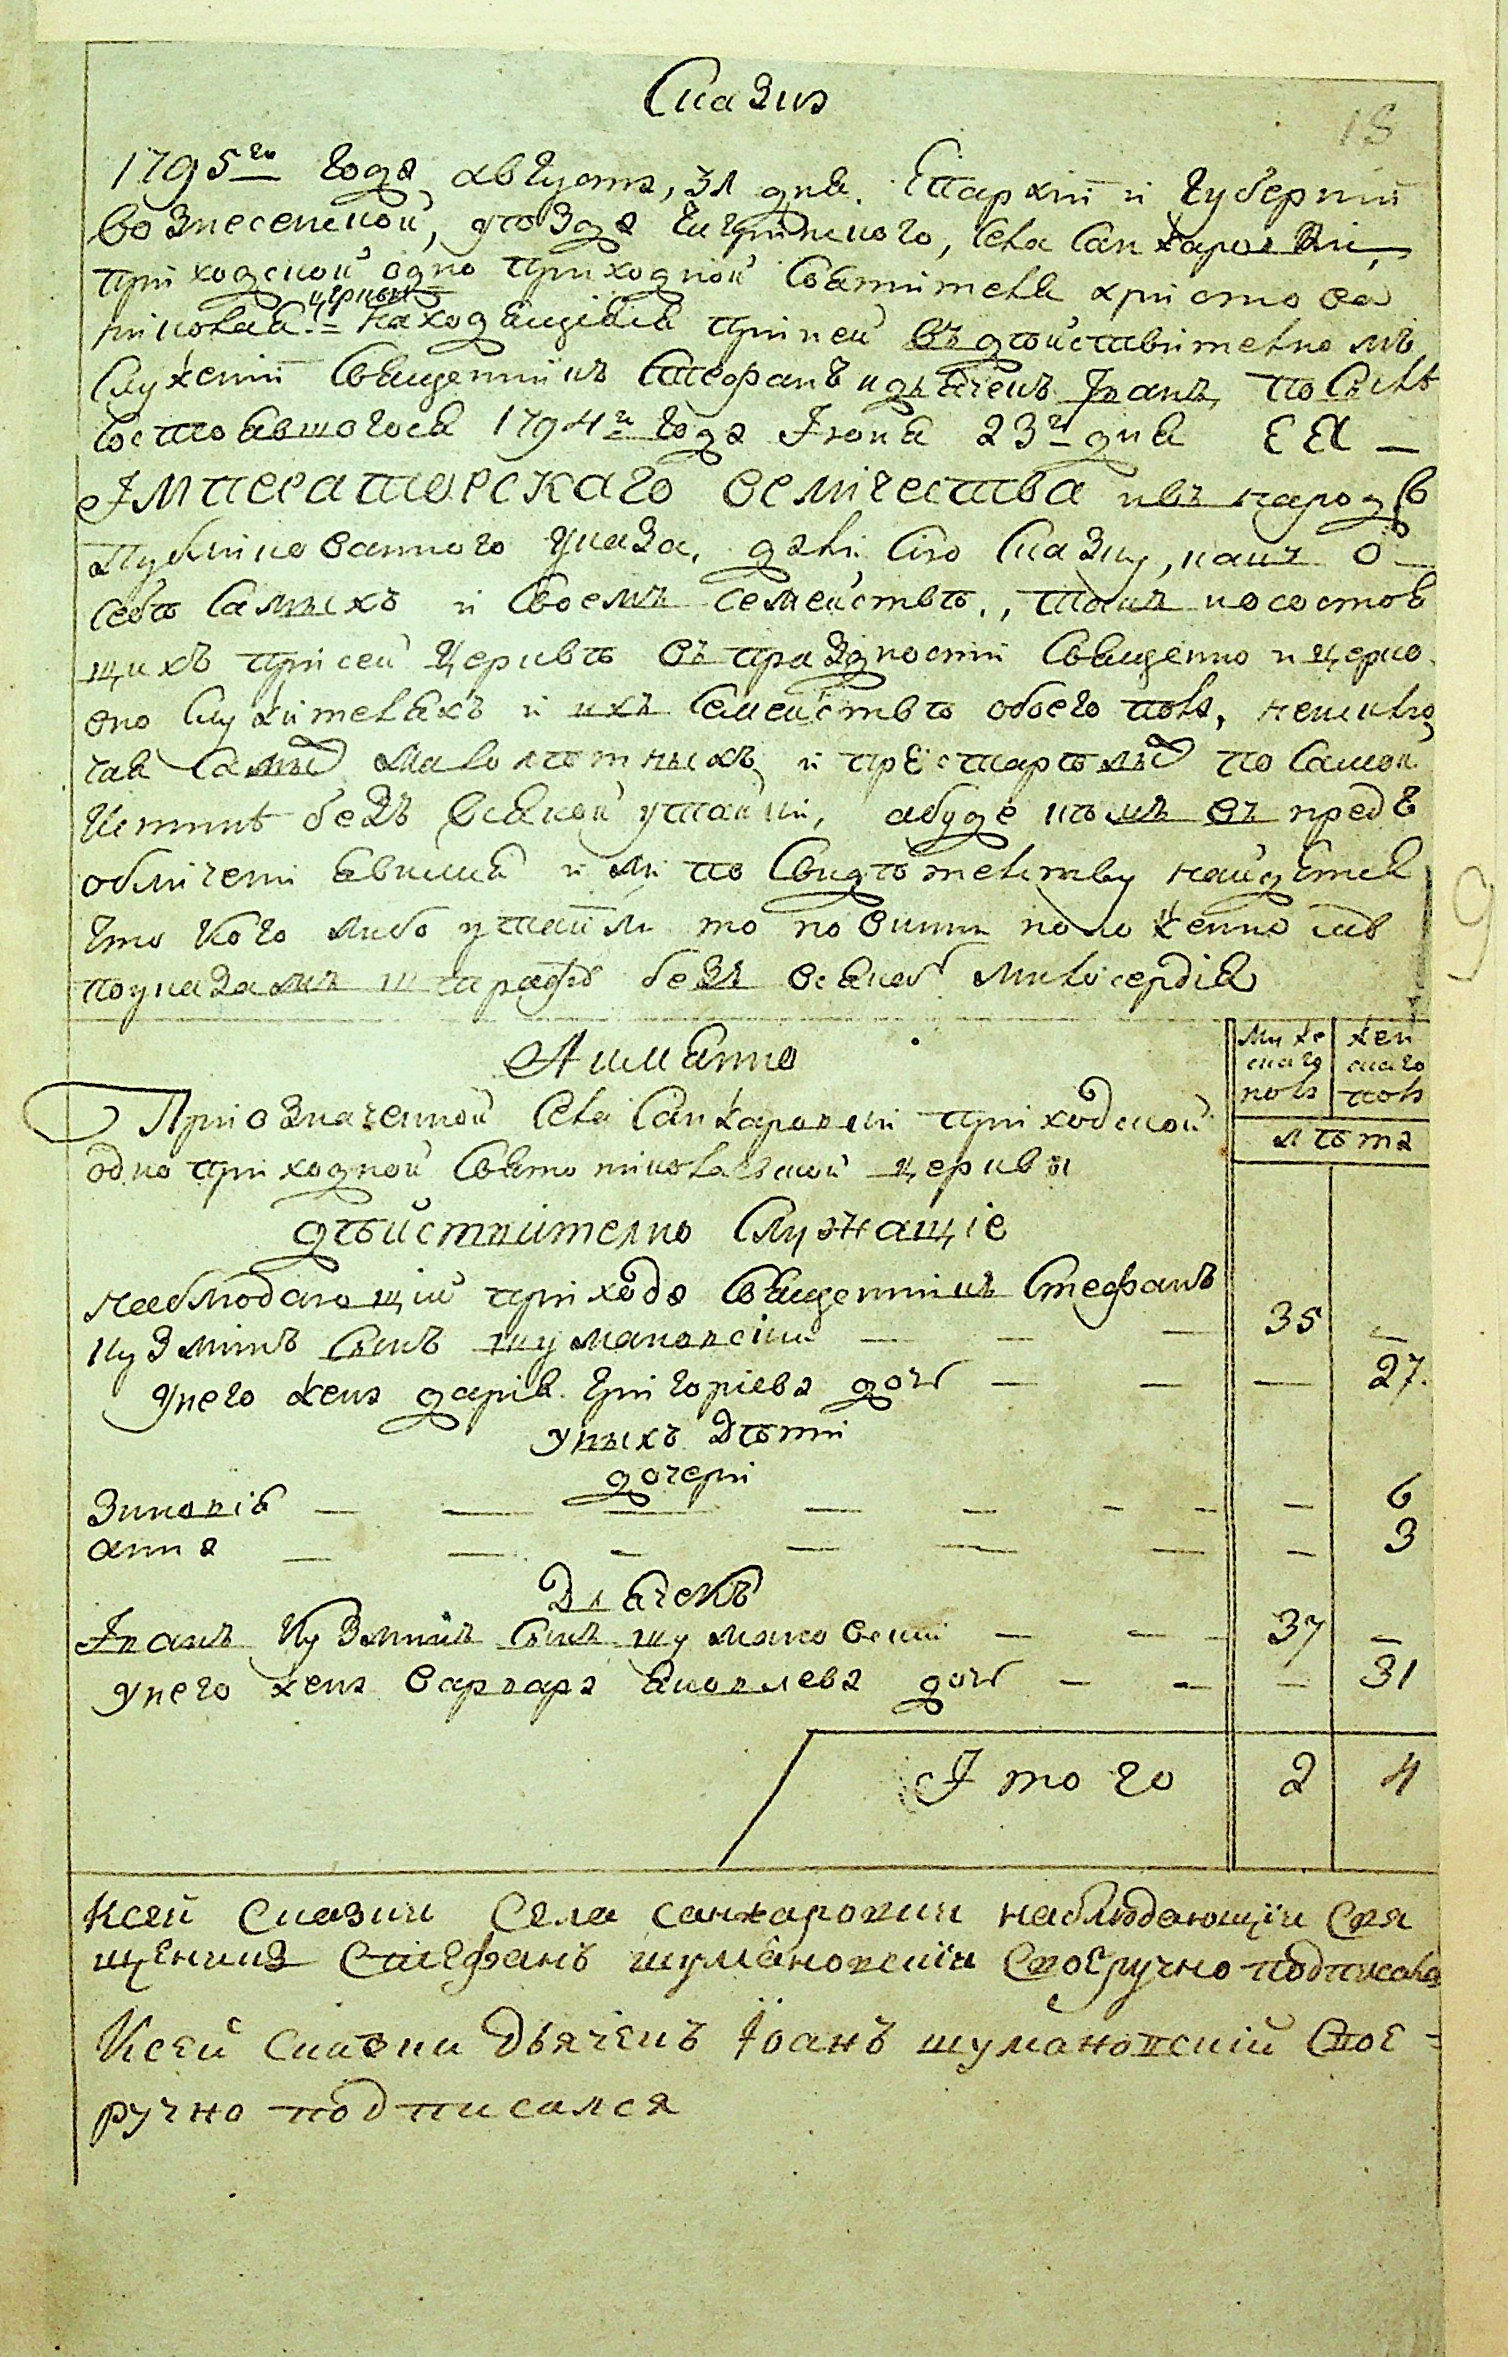 Сказка
18
1795го года августа, 31 дня. Епархіи и губерніи
вознесенской, уезда Чигринского, села Санжаровки,
приходской одно приходной Святителя христова
церкви
николая = находящіеся приней въ дѣйствителномъ
Служеніи Священникъ Стефанъ идьячекъ Іванъ, по Силѣ
состоявшогося 1794го года Іюня 23го дня ЕЯ —
Імператорскаго величества ивъ народъ
публикованного указа, дали Сію Сказку, какъ о
себѣ самыхъ и своемъ семействѣ, такъ исостоя
щихъ присей церквѣ въ праздности Священно ицерко
вно служителяхъ и ихъ семействѣ обоего пола, неисклю
чая самыхъ малолѣтныхъ и престарѣлыхъ по самой
истинѣ безъ всякой утайки, абуде кѣмъ въ предъ
обличени явимся или по Свидѣтелству найдется
что кого либо утаили то повинни положенно мъ
поуказамъ штрафѣ безъ всякаго милосердія
9
Аимянно
Мужеска го пола
женска го пола
лѣта
Приозначенной села Санжаровки приходской
одно приходной Свято николаевской церкви
дѣйствително Служащіе
наблюдающій прихода Священникъ Стефанъ
кузминъ сынъ шумановскій — — — 35 —
унего жена дарія григоріева дочь — — — 27.
уныхъ Дѣти
дочери
Зиновія — — — — — — — — 6
анна — — — — — — — 3
Дьячекъ
Іванъ Кузминъ сынъ шумановскій — — — 37 —
унего жена варвара Яковлева дочь — — — 31
Ітого 2 4
Ксей Сказки Села санжаровки наблюдающіи Свя
щеникъ Стефанъ шумановскіи Своеручно подписался
Ксей сказки Дьячекъ Іоанъ шумановскій Свое-
ручно подписался